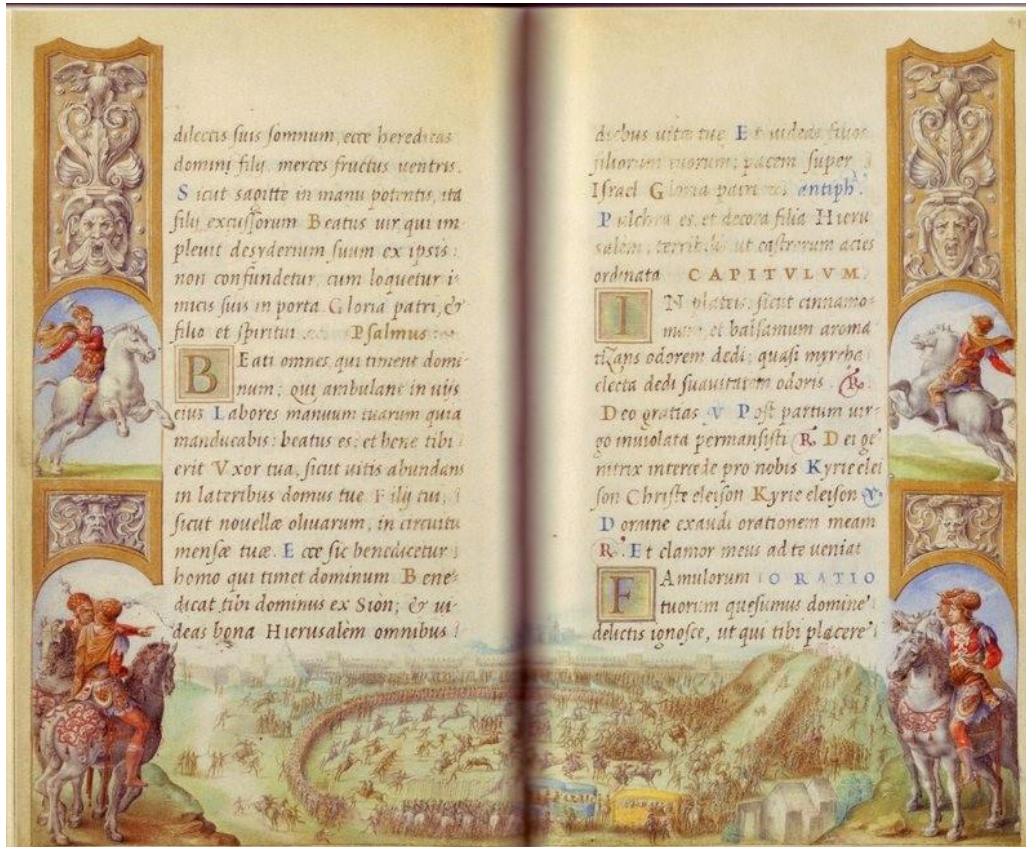 dilectis suis somnum, ecce hereditas
domini filij, merces fructus uentris.
Sicut sagitte in manu potentis, ita
filij excussorum Beatus uir qui im-
pleuit desyderium suum ex ipsis:
non confundetur, cum loquetur i-
micis suis in porta. Gloria patri, &
filio et spiritui Psalmus
BEati omnes, qui timent domi-
num: qui ambulant in uijs
eius Labores manuum tuarum quia
manducabis: beatus es: et bene tibi
erit Vxor tua, sicut uitis abundans
in lateribus domus tue Filij tui,
sicut nouellæ oliuarum, in circuitu
mensæ tuæ. Ecce sic benedicetur
homo qui timet dominum Bene-
dicat tibi dominus ex Sion; & ui-
deas bona Hierusalem omnibus
91
diebus uitæ tue Et uideas filios
filiorum tuorum: pacem super
Israel Gloria patri antiph.
Pulchra es, et decora filia Hieru
salem, terribilis ut castrorum acies
ordinata CAPITVLVM.
IN plateis, sicut cinnamo-
mum, et balsamum aroma
tizans odorem dedi: quasi myrrha
electa dedi suauitatem odoris. R.
Deo gratias V Post partum uir-
go inuiolata permansisti R. Dei ge
nitrix intercede pro nobis Kyrie elei
son Christe eleison Kyrie eleison V.
Domine exaudi orationem meam
R. Et clamor meus ad te ueniat
FAmulorum ORATIO
tuorum quesumus domine
delictis ignosce, ut qui tibi placere